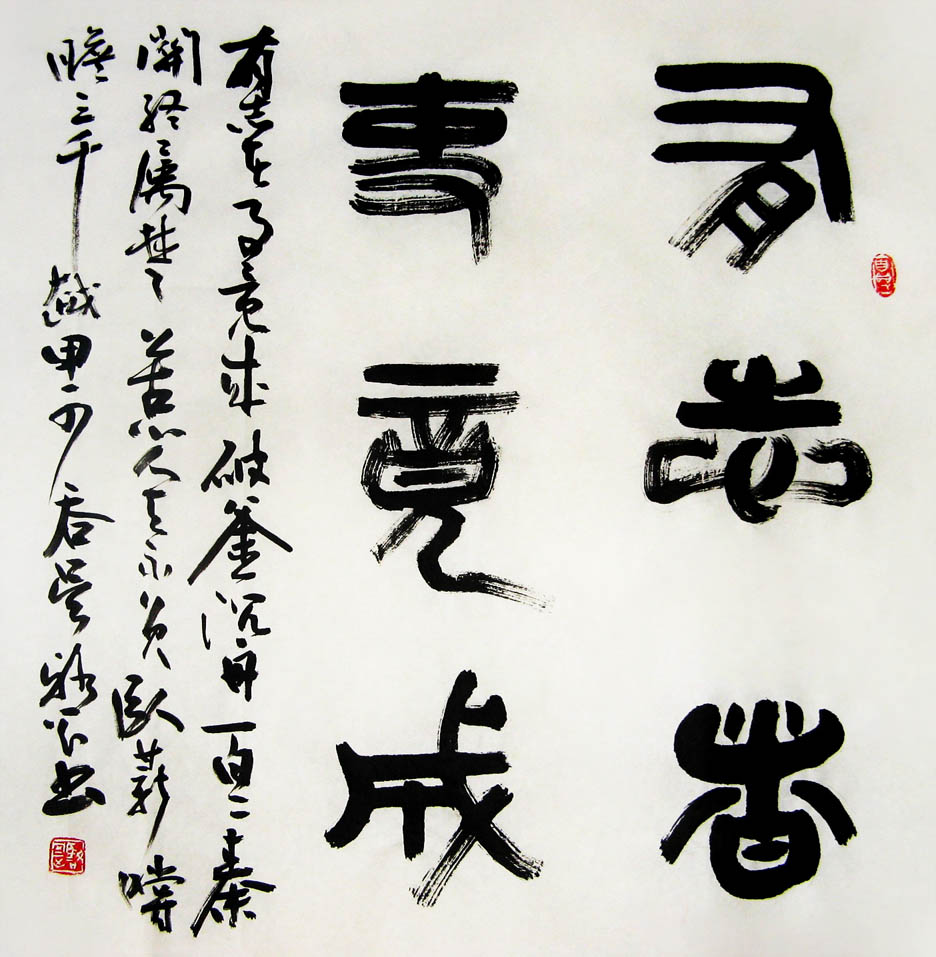 有志者
事竟成
有志者事竟成破釜沉舟一百二秦
關終屬楚苦心人天不負臥薪嘗
膽三千越甲可吞吳書